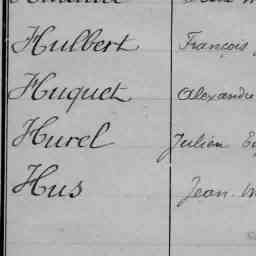 Hulbert François
Huquet Alexandre
Hurel Julien
Hus Jean